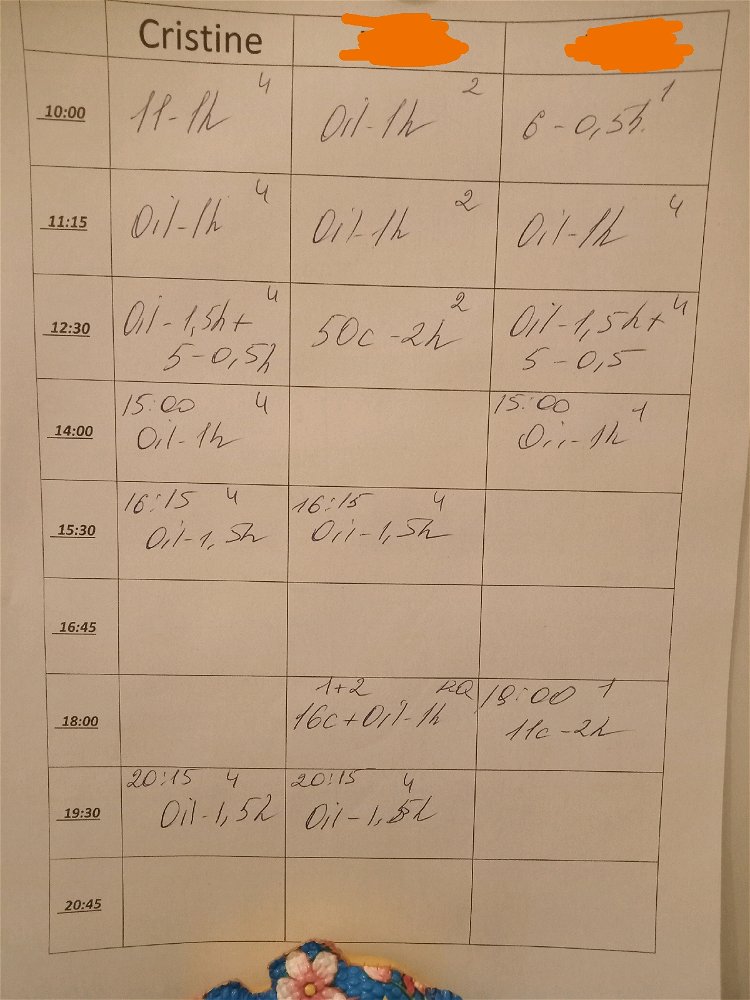 Cristine
10:00
4
11-1h
2
Oil-1h
1
6-0,5h.
11:15
4
Oil-1h
2
Oil-1h
4
Oil-1h
12:30
4
Oil-1,5h+
5-0,5h
2
50c-2h
4
Oil-1,5h+
5-0,5
14:00
15:00 4
Oil-1h
15:00 1
Oil-1h
15:30
16:15 4
Oil-1,5h
16:15 4
Oil-1,5h
16:45
18:00
1+2
16c+Oil-1h
1
11c-2h
19:30
20:15 4
Oil-1,5h
20:15 4
Oil-1,5h
20:45